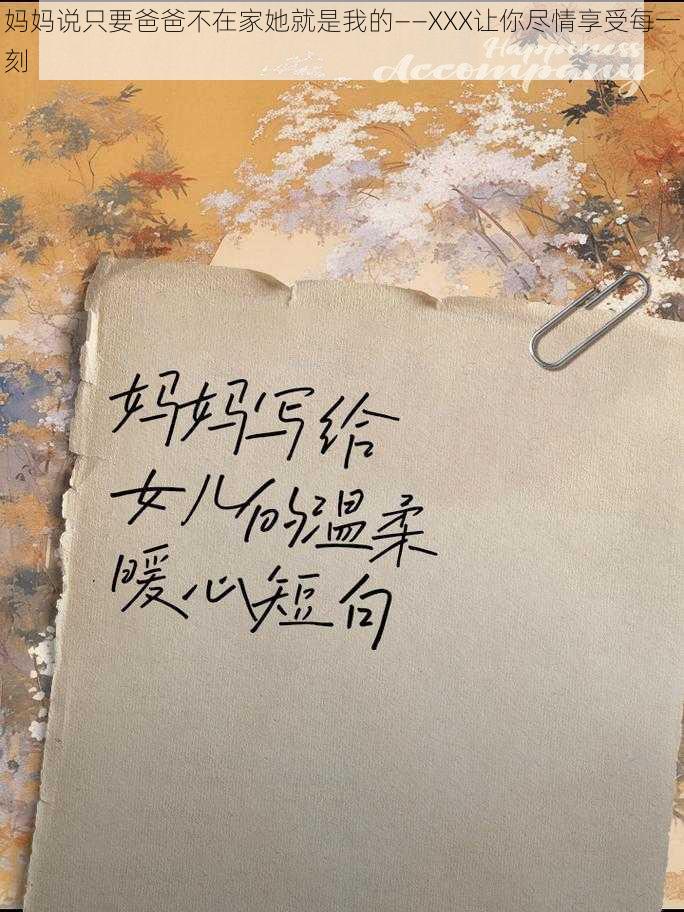 妈妈说只要爸爸不在家她就是我的——XXX让你尽情享受每一
刻
Happiness
Accompany
妈妈写给
女儿的温柔
暖心短句